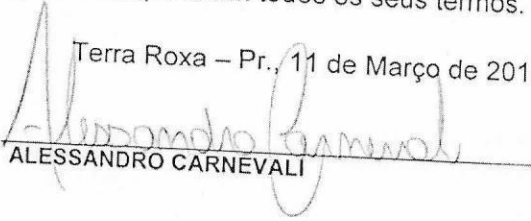 todos os seus termos.
Terra Roxa – Pr., 11 de Março de 201
Alessandro Carnevali
ALESSANDRO CARNEVALI